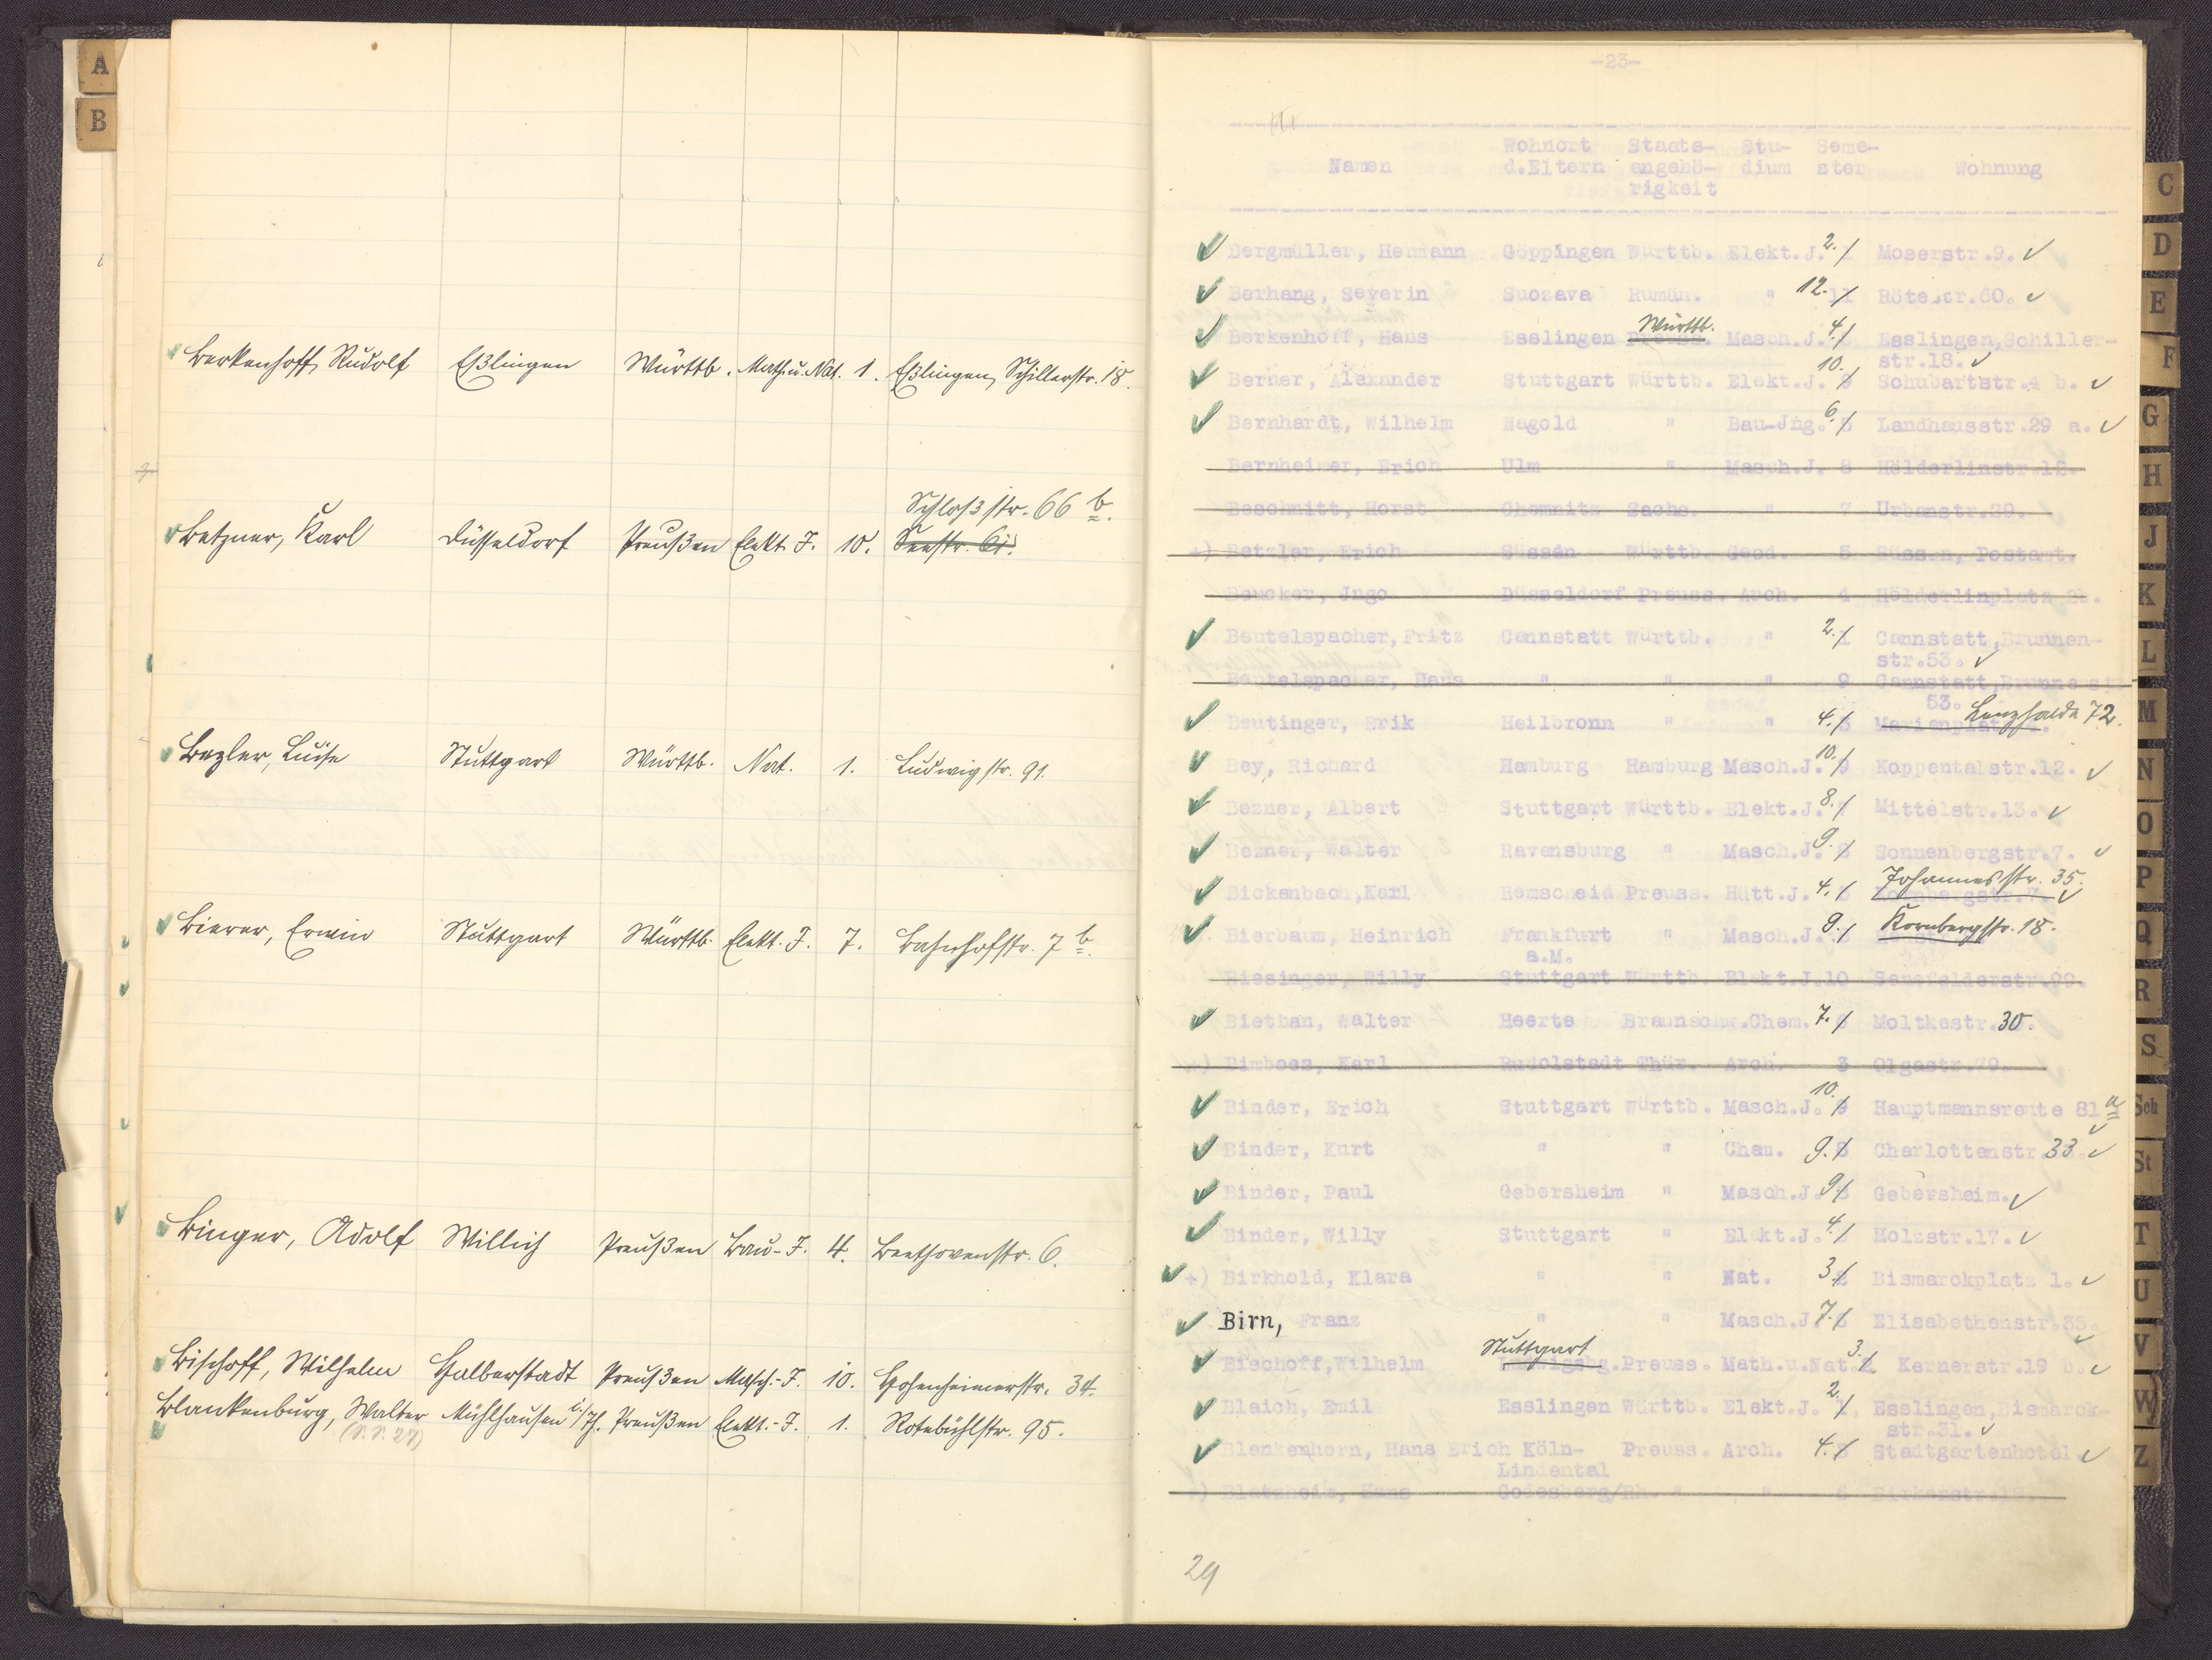 A
B
Berkenhoff, Rudolf Eßlingen Württb. Math. u. Nat. 1. Eßlingen, Schillerstr. 18.
Schloßstr. 66 b.
Betzner, Karl Düsseldorf Preußen Elekt. J. 10. Seestr. 61.
Bezler, Luise Stuttgart Württb. Nat. 1. Ludwigstr. 91.
Bierer, Erwin Stuttgart Württb. Elekt. J. 7. Bahnhofstr. 7 b.
Binger, Adolf Willich Preußen Bau-J. 4. Beethovenstr. 6.
Bischoff, Wilhelm Halberstadt Preußen Masch.-J. 10. Hohenheimerstr. 34.
Blankenburg, Walter Mühlhausen i./Th. Preußen Elekt.-J. 1. Rotebühlstr. 95.
(S.S. 27)
-23-
Wohnort Staats- Stu- Seme-
Namen d.Eltern angehö- dium ster Wohnung
rigkeit
Bergmüller, Hermann Göppingen Württb. Elekt.J. 2. 1 Moserstr.9.
Berhang, Severin Suozava Rumän. " 12. 11 Rötestr.60.
Württb.
Berkenhoff, Hans Esslingen Preuss. Masch.J. 4. Esslingen,Schiller-
str.18.
Berner, Alexander Stuttgart Württb. Elekt.J. 10. Schubartstr.4 b.
Bernhardt, Wilhelm Nagold " Bau-Jng. 6. 5 Landhausstr.29 a.
Bernheimer, Erich Ulm " Masch.J. 8 Hölderlinstr.12.
Beschnitt, Horst Chemnitz Sachs. " 7 Urbanstr.29.
+) Betzler, Erich Süssen Württb. Geod. 5 Süssen, Postamt.
Beucker, Jngo Düsseldorf Preuss. Arch. 4 Hölderlinplatz 2b.
Beutelspacher,Fritz Cannstatt Württb. " 2. 1 Cannstatt,Brunnen-
str.53.
Beutelspacher, Hans " " " 9 Cannstatt,Brunnenstr.
53.
Beutinger, Erik Heilbronn " " 4. 3 Marienplatz Lenzhalde 72.
Bey, Richard Hamburg Hamburg Masch.J. 10. 9 Koppentalstr.12.
Bezner, Albert Stuttgart Württb. Elekt.J. 8. Mittelstr.13.
Bezner, Walter Ravensburg " Masch.J. 9. 8 Sonnenbergstr.7.
Johannesstr. 35.
Bickenbach,Karl Remscheid Preuss. Hütt.J. 4.
Bierbaum, Heinrich Frankfurt " Masch.J. 9. Kornbergstr. 18.
a.M.
Biesinger, Willy Stuttgart Württb. Elekt.J. 10 Senefelderstr.99.
Biethan, Walter Heerte Braunschw.Chem. 7. Moltkestr. 30.
Birboes, Karl Rudolstadt Thür. Arch. 3 Olgastr.79.
Binder, Erich Stuttgart Württb. Masch.J. 10. 9 Hauptmannsreute 81 a
Binder, Kurt " " Chem. 9. 8 Charlottenstr. 33
Binder, Paul Gebersheim " Masch.J. 9. 8 Gebersheim.
Binder, Willy Stuttgart " Elekt.J. 4. Holzstr.17.
+) Birkhold, Klara " " Nat. 3. 2 Bismarckplatz 1.
Birn, Franz " " Masch.J. 7. 6 Elisabethenstr.35.
Stuttgart
Bischoff,Wilhelm Ludwigsbg.Preuss. Math.u.Nat. 3. Kernerstr.19 b.
Blaich, Emil Esslingen Württb. Elekt.J. 2. 1 Esslingen,Bismarck-
str.31.
Blankenhorn, Hans Erich Köln- Preuss. Arch. 4. 3 Stadtgartenhotel
Lindental
+) Blatzheim, Hans Godesberg/Rh. " " 6 Birkenstr.12.
29
C
D
E
F
G
H
J
K
L
M
N
O
P
Q
R
S
Sch
St
T
U
V
W
Z